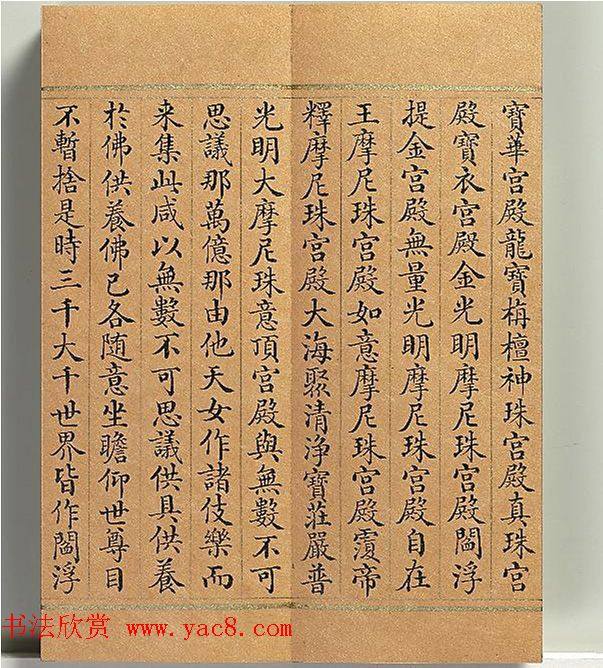 寶華宫殿龍寶栴檀神珠宫殿真珠宫
殿寶衣宫殿金光明摩尼珠宫殿閻浮
提金宫殿無量光明摩尼珠宫殿自在
王摩尼珠宫殿如意摩尼珠宫殿帝
釋摩尼珠宫殿大海聚清浄寶莊嚴普
光明大摩尼珠意頂宫殿與無數不可
思議那萬億那由他天女作諸伎樂而
来集此咸以無數不可思議供具供養
於佛供養佛已各随意坐瞻仰世尊目
不暫捨是時三千大千世界皆作閻浮
书法欣赏 www.yac8.com